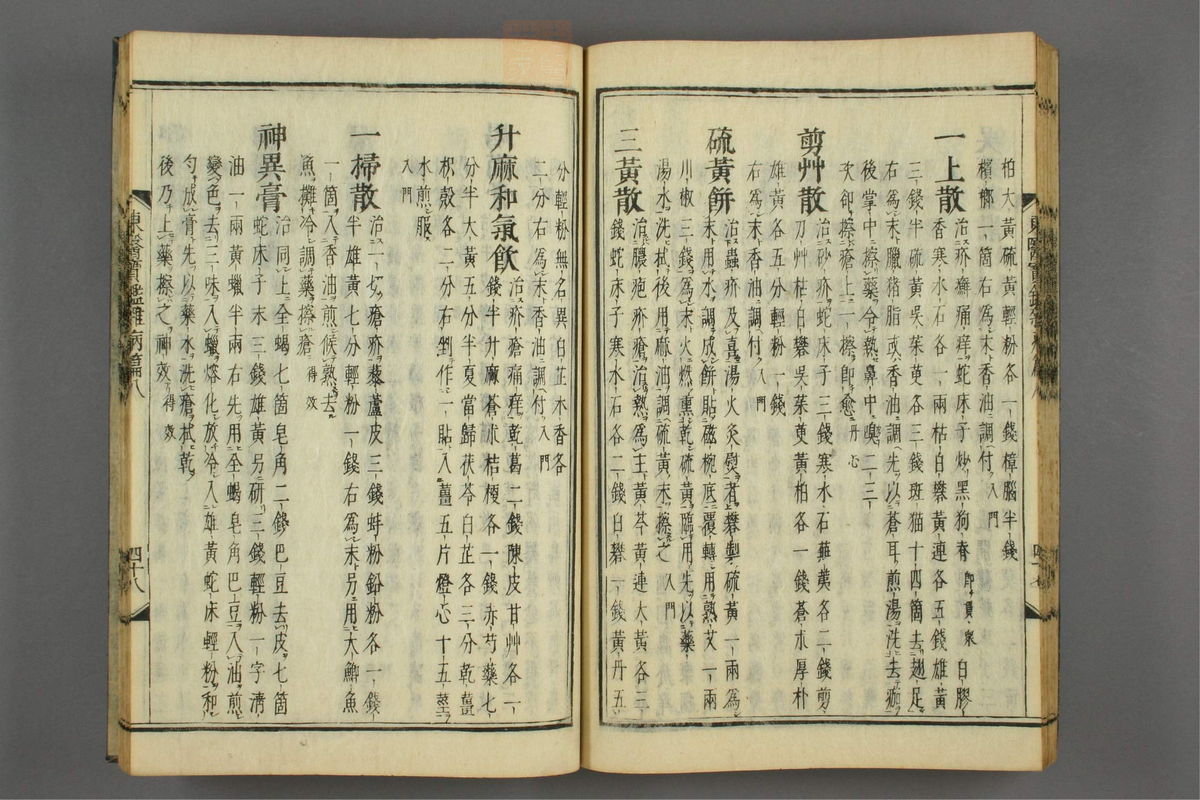 柏大黃硫黃輕粉各一錢樟腦半錢
檳榔一箇右爲末香油調付入門
一上散 治疥癬痛痒蛇床子炒黑狗脊卽貫衆白膠
香寒水石各一兩枯白礬黃連各五錢雄黃
三錢半硫黃吳茱萸各三錢斑猫十四箇去翅足
右爲末臘猪脂或香油調先以蒼耳煎湯洗去痂
後掌中擦藥令熱鼻中嗅二三
次卽擦瘡上一擦卽愈丹心
剪艸散 治砂疥蛇床子三錢寒水石蕪荑各二錢剪
刀艸枯白礬吳茱萸黃柏各一錢蒼朮厚朴
雄黃各五分輕粉一錢
右爲末香油調付入門
硫黃餠 治蟲疥及喜湯火灸熨者礬製硫黃一兩爲
末用水調成餠貼磁椀底覆轉用熟艾一兩
川椒三錢爲末火燃熏乾硫黃臨用先以藥
湯水洗拭後用麻油調硫黃末擦之入門
三黃散 治膿疱疥瘡治熱爲主黃芩黃連大黃各三
錢蛇床子寒水石各二錢白礬一錢黃丹五
分輕粉無名異白芷木香各
二分右爲末香油調付入門
升麻和氣飮 治疥瘡痛痒乾葛二錢陳皮甘艸各一
錢半升麻蒼朮桔梗各一錢赤芍藥七
分半大黃五分半夏當歸茯苓白芷各三分乾薑
枳殼各二分右剉作一貼入薑五片燈心十五莖
水煎服
入門
一掃散 治一切瘡疥藜蘆皮三錢蚌粉鉛粉各一錢
半雄黃七分輕粉一錢右爲末另用大鯽魚
一箇入香油煎候熟去
魚攤冷調藥擦瘡得效
神異膏 治同上全蝎七箇皂角二錢巴豆去皮七箇
蛇床子末三錢雄黃另研三錢輕粉一字淸
油一兩黃蠟半兩右先用全蝎皂角巴豆入油煎
變色去三味入蠟熔化放冷入雄黃蛇床輕粉和
勻成膏先以藥水洗瘡拭乾
後乃上藥擦之神效得效
東醫寶鑑雜病篇八
四十八